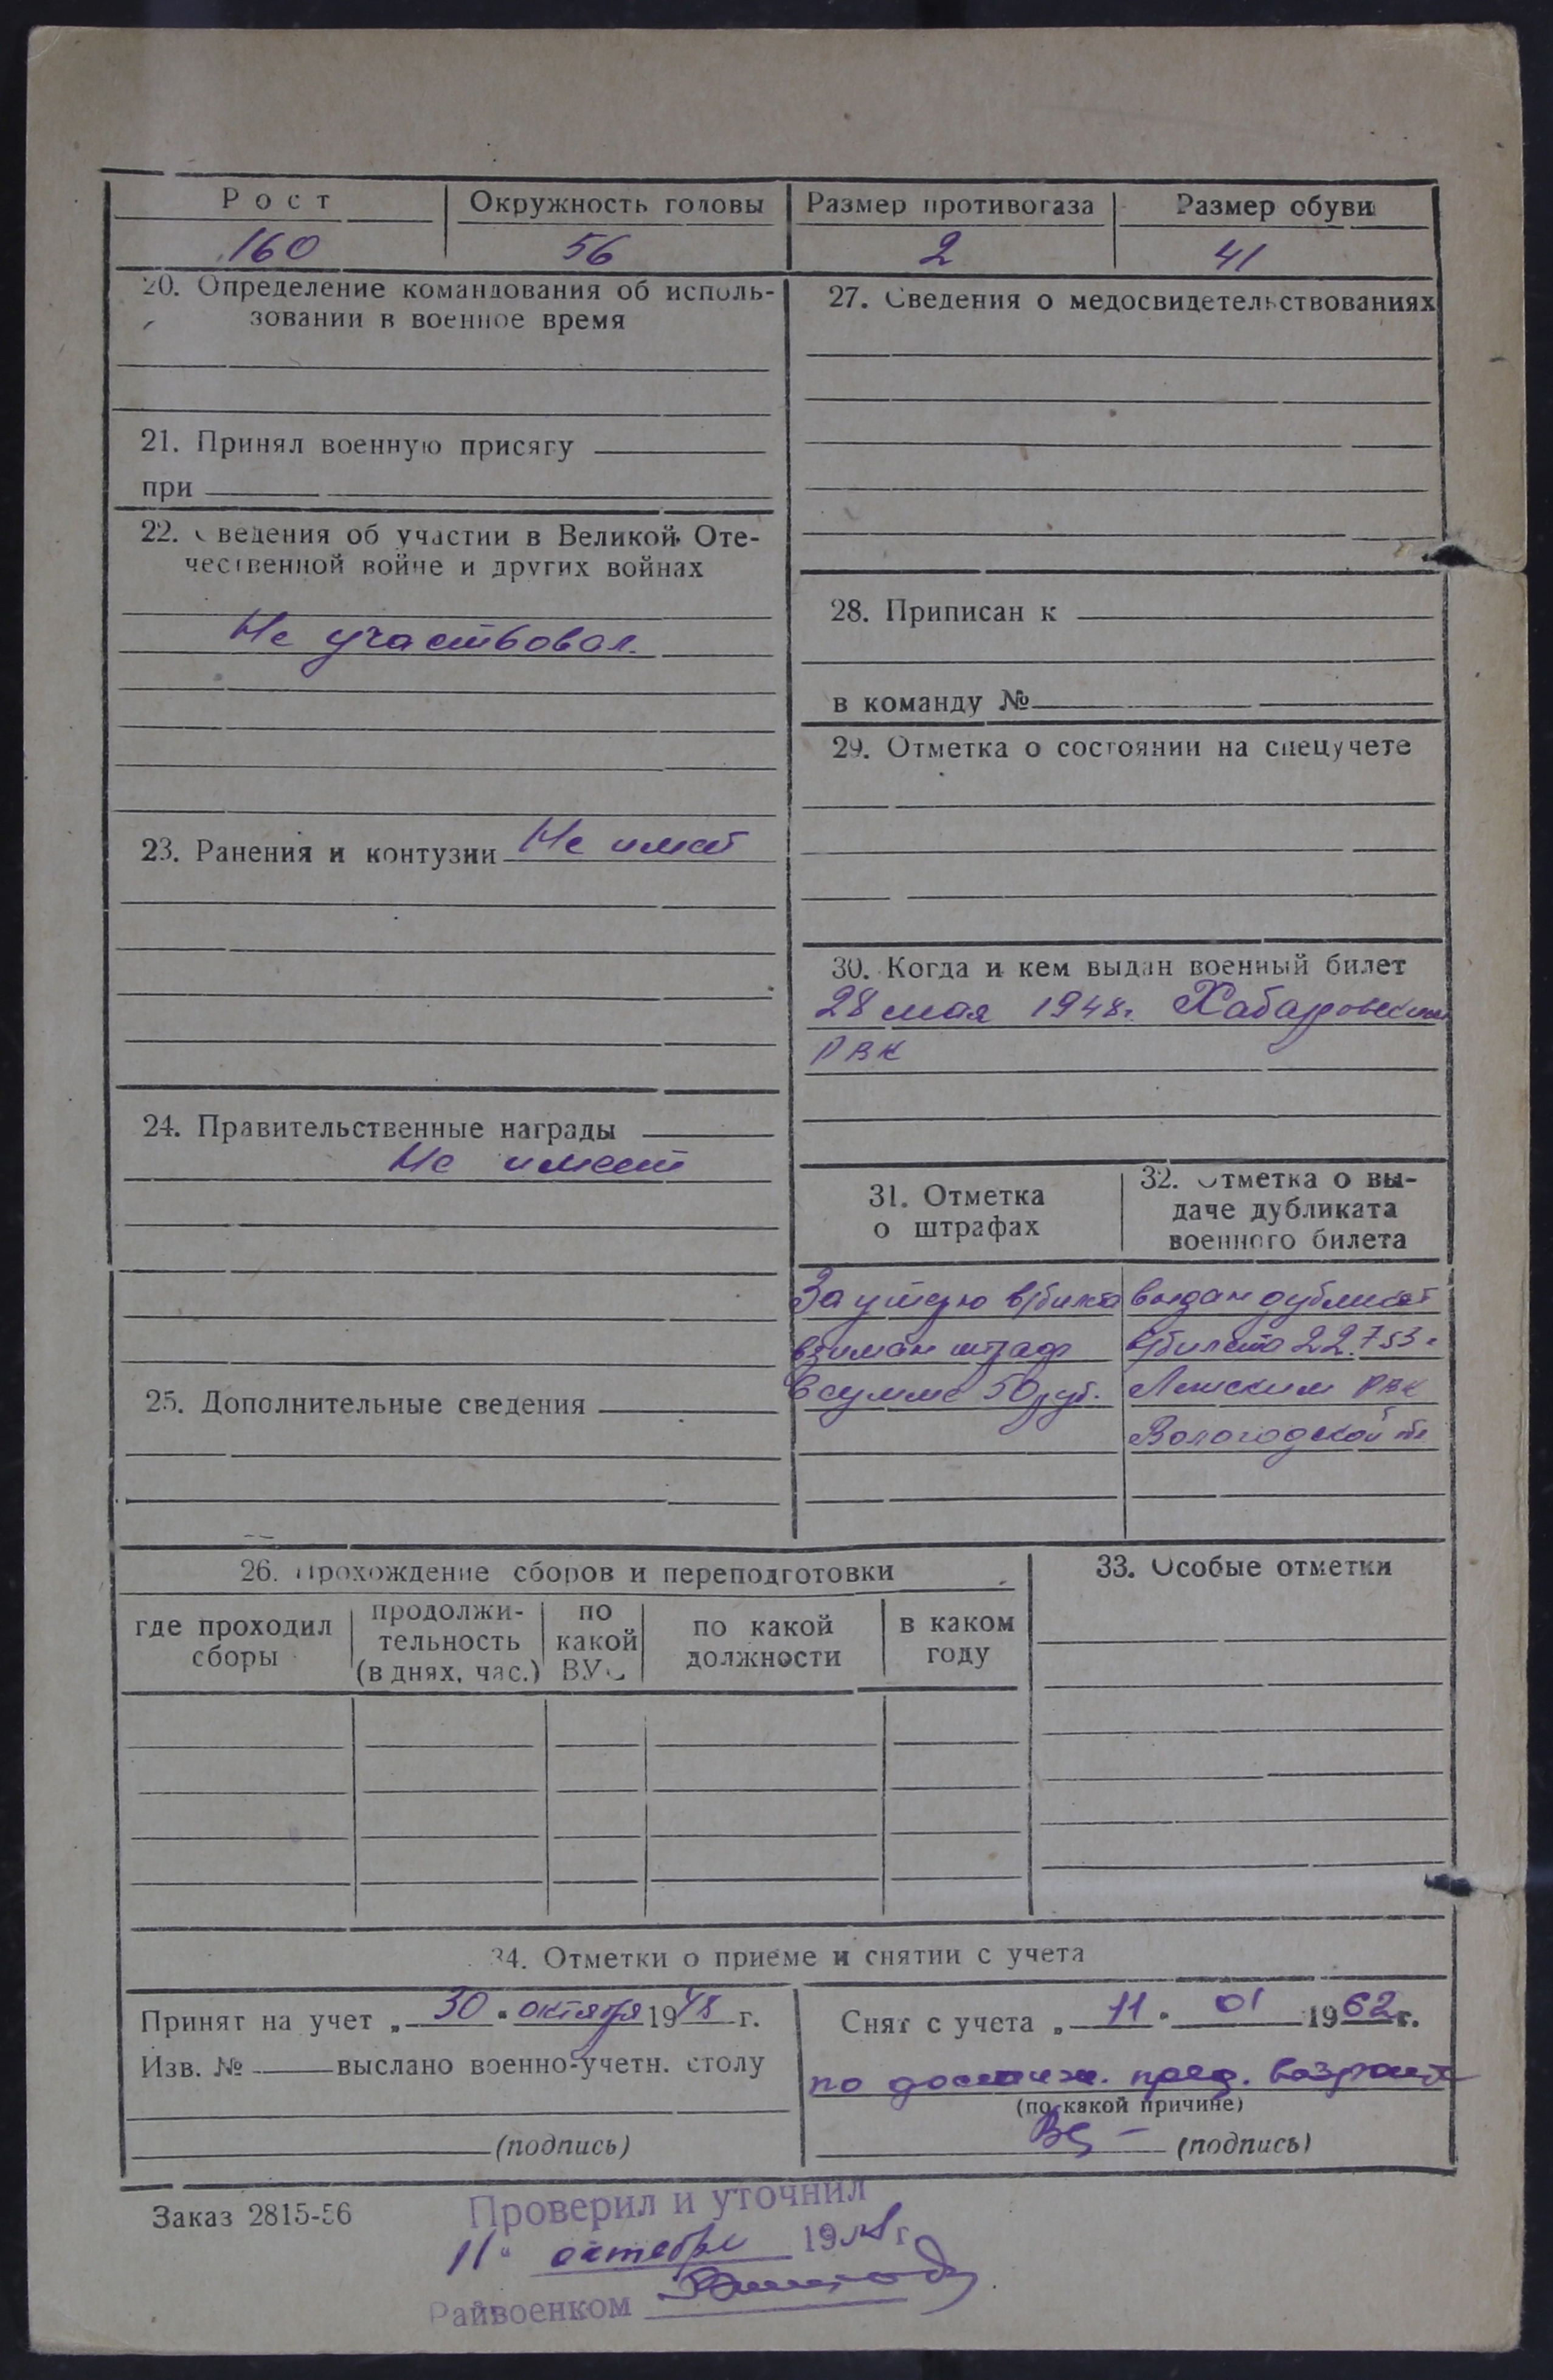 Рост Окружность головы Размер противогаза Размер обуви
160 56 2 41
20. Определение командования об исполь-
зовании в военное время
21. Принял военную присягу
при
22. Сведения об участии в Великой Оте-
чественной войне и других войнах
Не участвовал.
23. Ранения и контузии Не имеет
24. Правительственные награды
Не имеет
25. Дополнительные сведения
27. Сведения о медосвидетельствованиях
28. Приписан к
в команду №
29. Отметка о состоянии на спецучете
30. Когда и кем выдан военный билет
28 мая 1948г. Хабаровским
РВК
31. Отметка
о штрафах
За утерю в/билета
взиман штраф
в сумме 50 руб.
32. Отметка о вы-
даче дубликата
военного билета
выдан дубликат
в/билета 22.7 53г
РВК
Вологодской
26. Прохождение сборов и переподготовки
где проходил
сборы
продолжи-
тельность
(в днях, час.)
по
какой
ВУС
по какой
должности
в каком
году
33. Особые отметки
34. Отметки о приеме и снятии с учета
Принят на учет „30" октября 1948 г.
Изв. № выслано военно-учетн. столу
(подпись)
Снят с учета „11" 01 1962 г.
по достиж. пред. возраста
(по какой причине)
(подпись)
Заказ 2815-56
Проверил и уточнил
11" октября 19 г.
Райвоенком